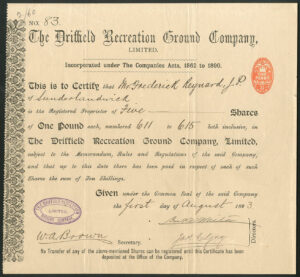 No. 83
The Driffield Recreation Ground Company,
LIMITED.
Incorporated under The Companies Acts, 1862 to 1890.
This is to Certify that Mr Frederick Reynard, J.P.
of Sunderlandwick
is the Registered Proprietor of Five Shares
of One Pound each, numbered 611 to 615 both inclusive, in
The Driffield Recreation Ground Company, Limited,
subject to the Memorandum, Rules and Regulations of the said Company
and that up to this date there has been paid in respect of each of such
Shares the sum of Ten Shillings.
Given under the Common Seal of the said Company
the first day of August 1893
LIMITED
Directors.
W. A. Brown
Secretary.
No Transfer of any of the above-mentioned Shares can be registered until this Certificate has been
deposited at the Office of the Company.